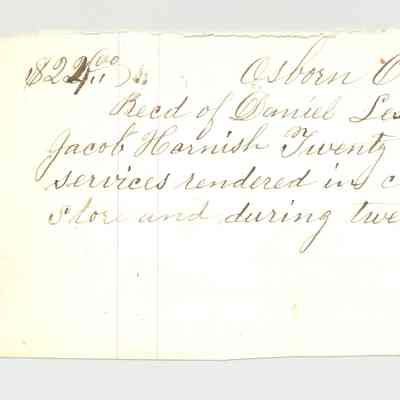 $22.00
Osborn O
Recd of Daniel Les
Jacob Harnish Twenty
services rendered in c
store and during twe